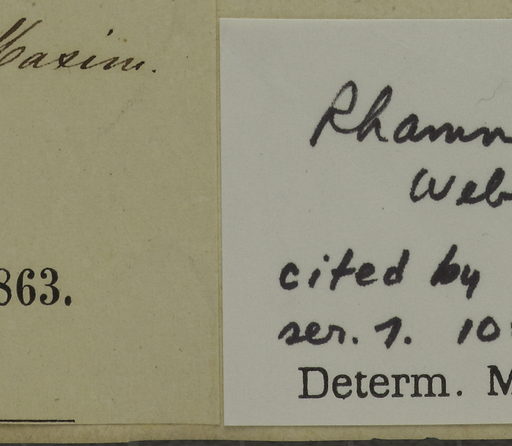 Maxim.
863.
Rhamn
Web
cited by
ser. 7. 10
Determ. M